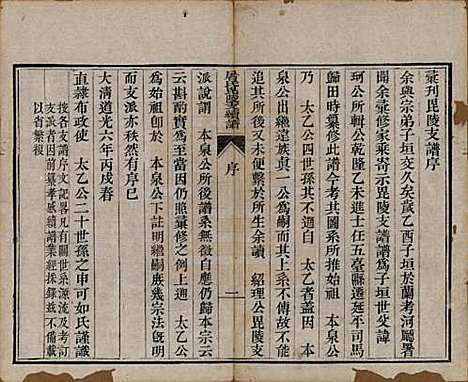 彙刊毘陵支譜序
余與宗弟子垣交久矣歲乙酉子垣於蘭考河廳署
開余彙修家乘寄示毘陵支譜譜爲子垣世父諱
珂公所輯公於乾隆乙未進士任五臺縣遷延平司馬
歸田時纂修此譜今考其圖系所推始祖 本泉公
乃 太乙公四世孫其不遡自 太乙者蓋因 本
泉公出繼遠族眞一公爲嗣而其上系不傳故不能
追其所自亦未便繫於所生余讀 紹理公毘陵支
孝感堂續譜
序
一
派說謂 本泉公所後譜系無徵自應仍歸本宗云
云斟酌實爲至當因仍照彙修之例上遡 太乙公
爲始祖至 本泉公下則註明繼嗣庶幾宗法旣明
而支派亦秩然有序已
大清道光六年丙戌春
直隸布政使 太乙公二十世孫之申可如氏謹識
按各支譜序文記畧凡有關世系源流及考訂
支派者因前纂孝感續譜業經採錄茲不備載
以省繁複